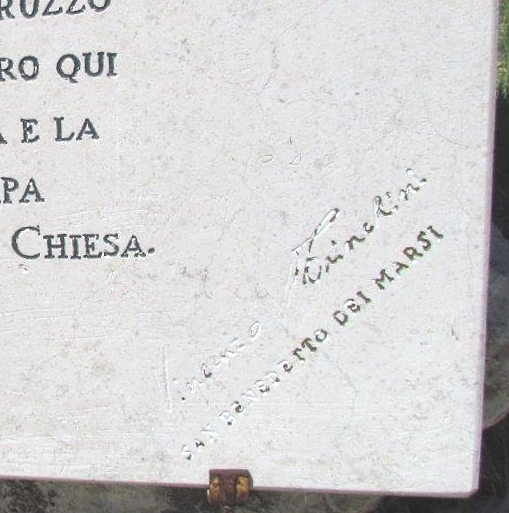 RUZZO
RO QUI
A E LA
PA
CHIESA.
Vincenzo
SAN BENEDETTO DEI MARSI